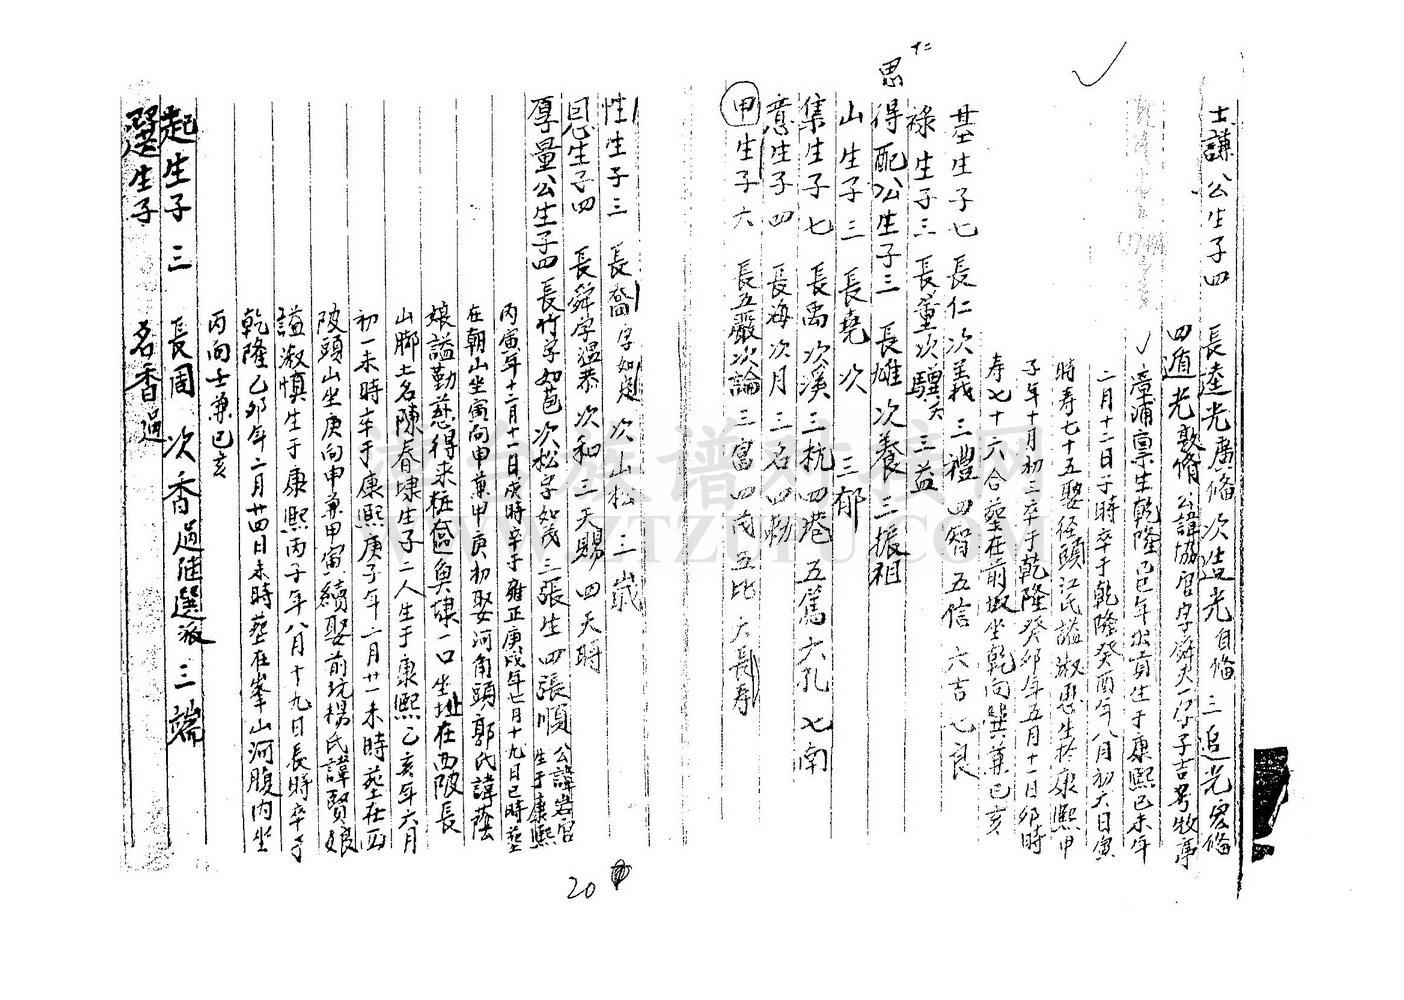 十二
思
士謙公生子四 長達光廣脩 次造光自脩 三追光宏脩
四遁光敦脩 公諱協官字 号牧亭
漳浦廩生乾隆己巳年 貢生于康熙己未年
二月十二日子時卒于乾隆癸酉年八月初六日寅
時寿七十五娶径頭江氏謚淑惠生於康熙甲
子年十月初三卒于乾隆癸卯年五月十一日卯時
寿七十六合葬在前 坐乾向巽兼已亥
基生子七 長仁次義 三禮 四智 五信 六吉 七良
祿生子三 長董次 三益
得配公生子三 長雄 次養 三振祖
山生子三 長堯 次 三郁
集生子七 長禹 次溪 三杭 四港 五篤 六孔 七南
意生子四 長海次月 三名 四勅
甲生子六 長五嚴次論 三富 四茂 五比 六長寿
性生子三 長喬字如 次山松 三嵗
恩生子四 長舜字温恭 次和 三天賜 四天時
厚量公生子四 長竹字如苞 次松字如茂 三張生 四張順 公諱岩官 生于康熙
丙寅年十二月十一日戌時卒于雍正庚戌年七月十九日巳時葬
在朝山坐寅向申兼甲庚初娶河角頭郭氏諱蔭
娘謚勤慈得來 一口坐址在西陂長
山脚土名陳春埭生子二人生于康熙乙亥年六月
初一未時卒于康熙庚子年二月廿一未時葬在
陂頭山坐庚向甲兼申寅續娶前坑楊氏諱賢娘
謚淑慎生于康熙丙子年八月十九日長時卒于
乾隆乙卯年二月廿四日未時葬在峯山河腹内坐
丙向士兼已亥
起生子三 長周 次香過継選派 三端
選生子 名香過
20
法台族谱对接网
WWW.ZTZUPU.COM